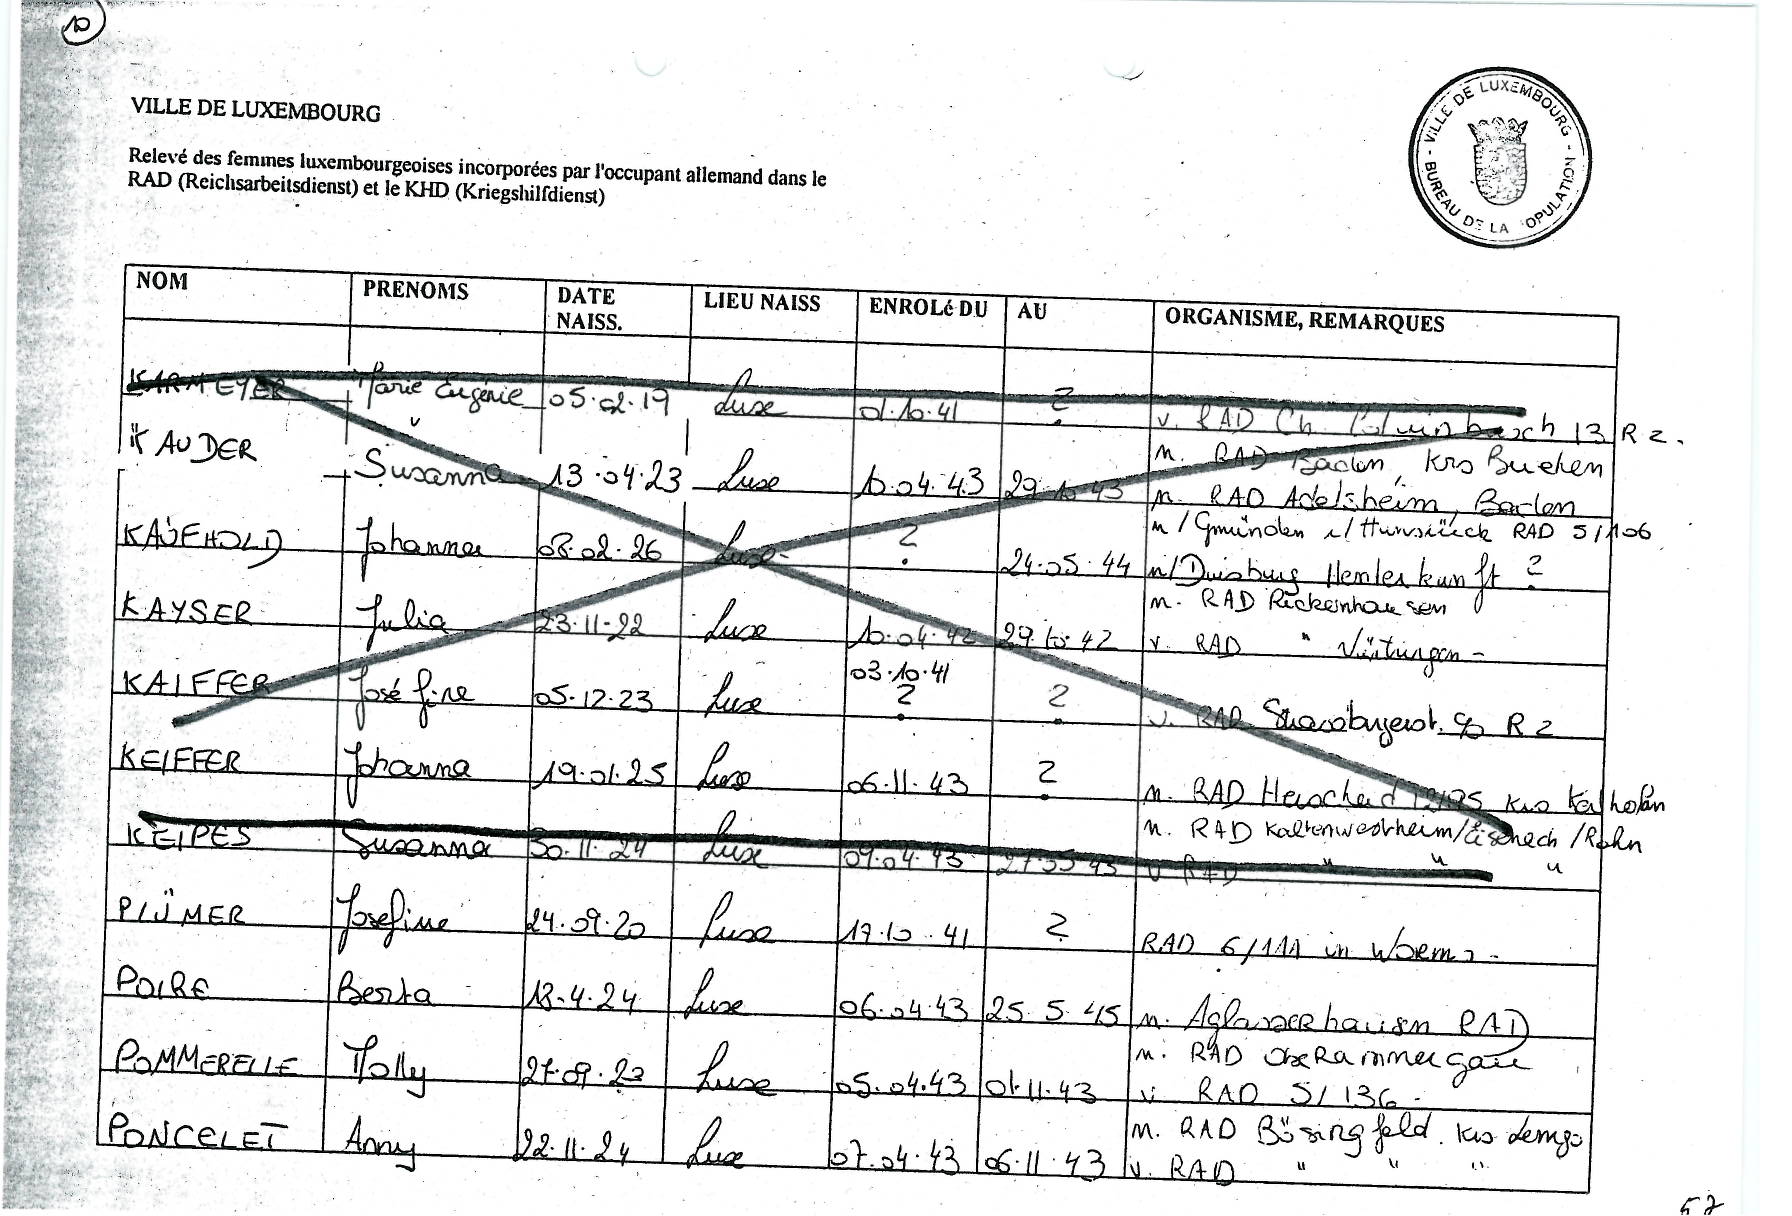 10
VILLE DE LUXEMBOURG
VILLE DE LUXEMBOURG - BUREAU DE LA POPULATION -
Relevé des femmes luxembourgeoises incorporées par l'occupant allemand dans le
RAD (Reichsarbeitsdienst) et le KHD (Kriegshilfdienst)
NOM PRENOMS DATE NAISS. LIEU NAISS ENROLé DU AU ORGANISME, REMARQUES
KARMEYER Marie Eugénie 05.02.19 Luxe 01.10.41 ? v. RAD Ch. 13 R 2.
KAUDER Susanna 13.04.23 Luxe 10.04.43 29.10.43 m. RAD Baden, Krs Buchen
m. RAD Adelsheim, Baden
KAUFHOLD Johanna 08.02.26 Luxe ? 24.05.44 n/Gmünden i/Hunsrück RAD 5/106
n/Duisburg ?
KAYSER Julia 23.11.22 Luxe 10.04.42 29.10.42 m. RAD Rickenhausen
v. RAD " Nürtingen -
KAIFFER Joséfine 05.12.23 Luxe 03.10.41 ? ? v. RAD R 2
KEIFFER Johanna 19.01.25 Luxe 06.11.43 ? m. RAD Herscheid Krs
KEIPES Susanna 30.11.24 Luxe 09.04.43 43 m. RAD Kaltenwestheim/Eisenach/Röhn
v RAD " " "
PLÜMER Josefine 24.09.20 Luxe 17.10.41 ? RAD 6/111 in Worms -
POIRE Berta 18.4.24 Luxe 06.04.43 25.5.45 m. Aglasterhausen RAD
POMMERELLE Molly 27.09.23 Luxe 05.04.43 01.11.43 m. RAD Oberammergau
v RAD 5/136 -
PONCELET Anny 22.11.24 Luxe 07.04.43 06.11.43 m. RAD Bösingfeld. Krs Lemgo
v. RAD " " "
57